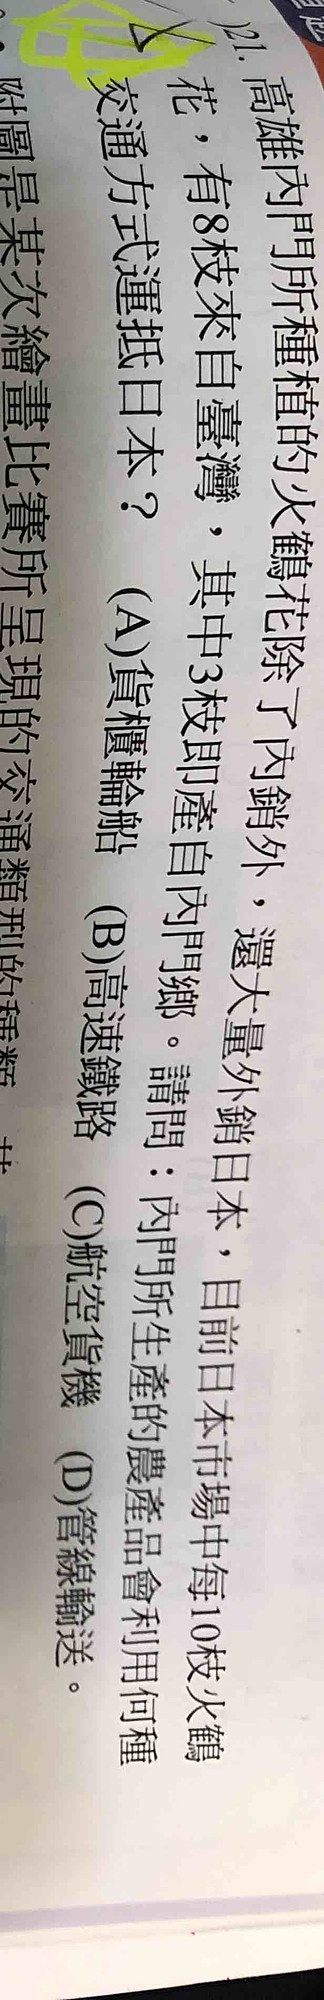 )21. 高雄內門所種植的火鶴花除了內銷外，還大量外銷日本，目前日本市場中每10枝火鶴
花，有8枝來自臺灣，其中3枝即產自內門鄉。請問：內門所生產的農產品會利用何種
交通方式運抵日本？ (A)貨櫃輪船 (B)高速鐵路 (C)航空貨機 (D)管線輸送。
附圖是某次繪畫比賽所呈現的交通類型的種類，其